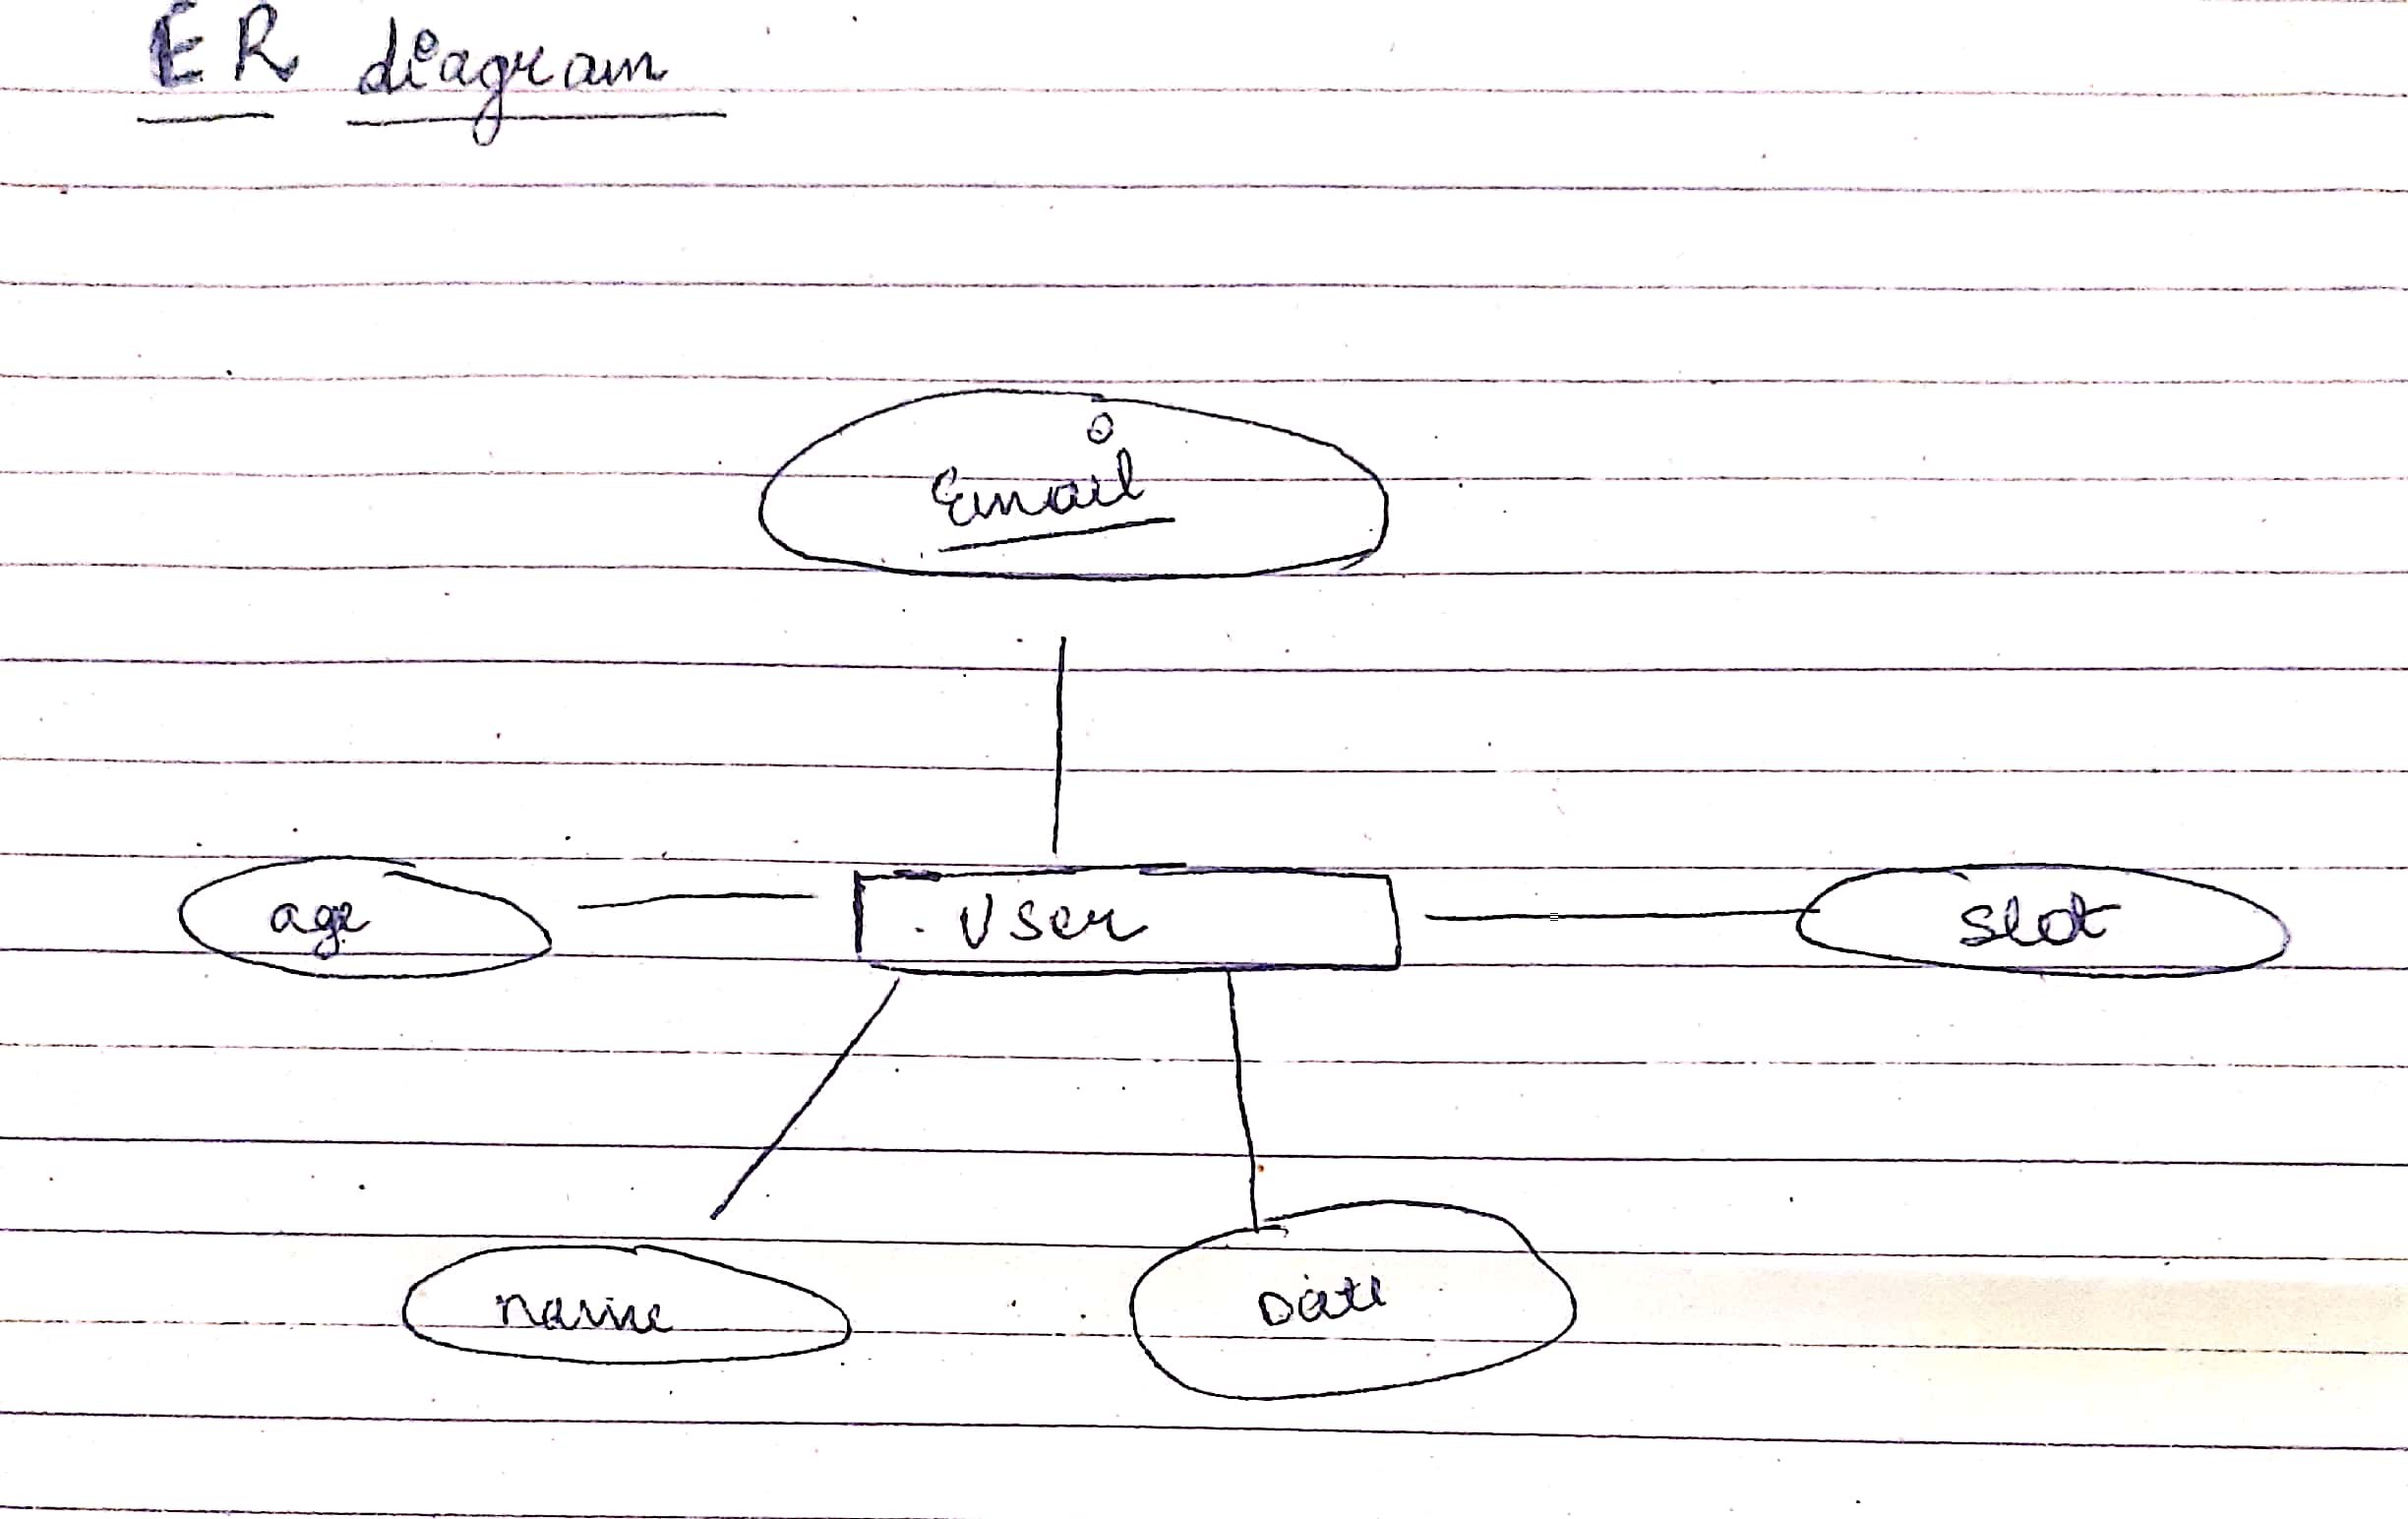 ER diagram
Email
age
User
slot
name
Date